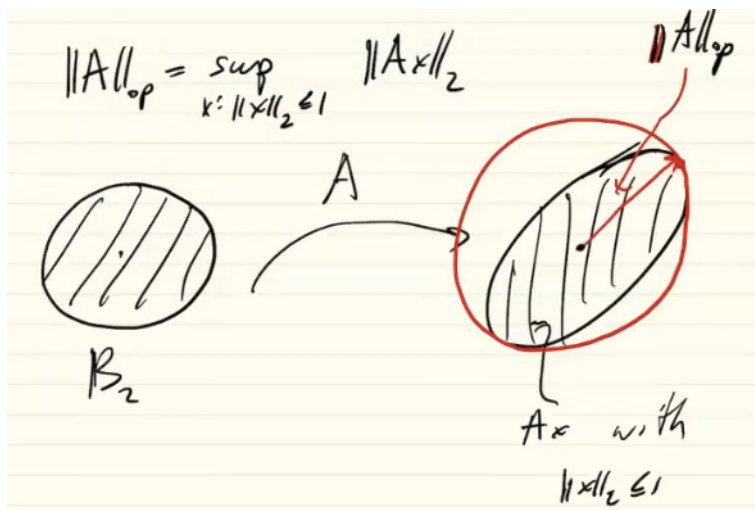 ‖A‖_op = sup_{x: ‖x‖_2 ≤ 1} ‖Ax‖_2
‖A‖_op
A
B_2
Ax with
‖x‖_2 ≤ 1